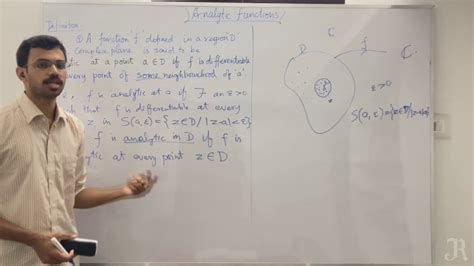 Analyte Functions
Definition
① A function 'f' defined in a region 'D'
Complex plane is said to be
tic at a point a∈D if f is differentiable
every point of some neighbourhood of a'
f is analytic at a if ∃ an ε>0
such that f is differentiable at every
z in S(a,ε)={z∈D/|z-a|<ε}
f is analytic in D if f is
lytic at every point z∈D.
C
D
f
C
ε>0
S(a,ε)={z∈D/|z-a|<ε}
JR